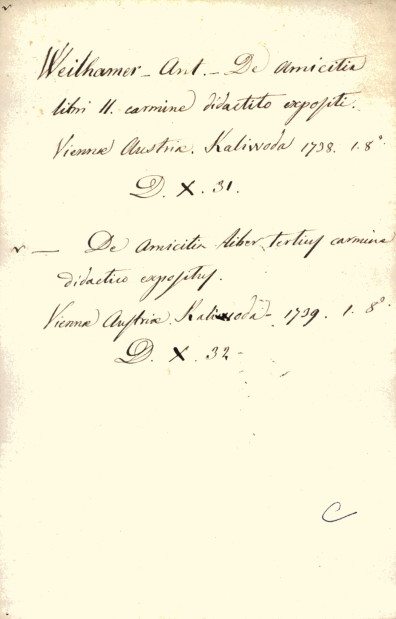 Weilhamer - Ant. - De Amicitia
libri II. carmine didactito expositi.
Viennæ Austriæ. Kaliwoda 1738. 1. 8°.
D. X. 31.
— De Amicitia liber tertius carmine
didactico expositus.
Viennæ Austriæ. Kaliwoda - 1739. 1. 8°.
D. X. 32 -
C